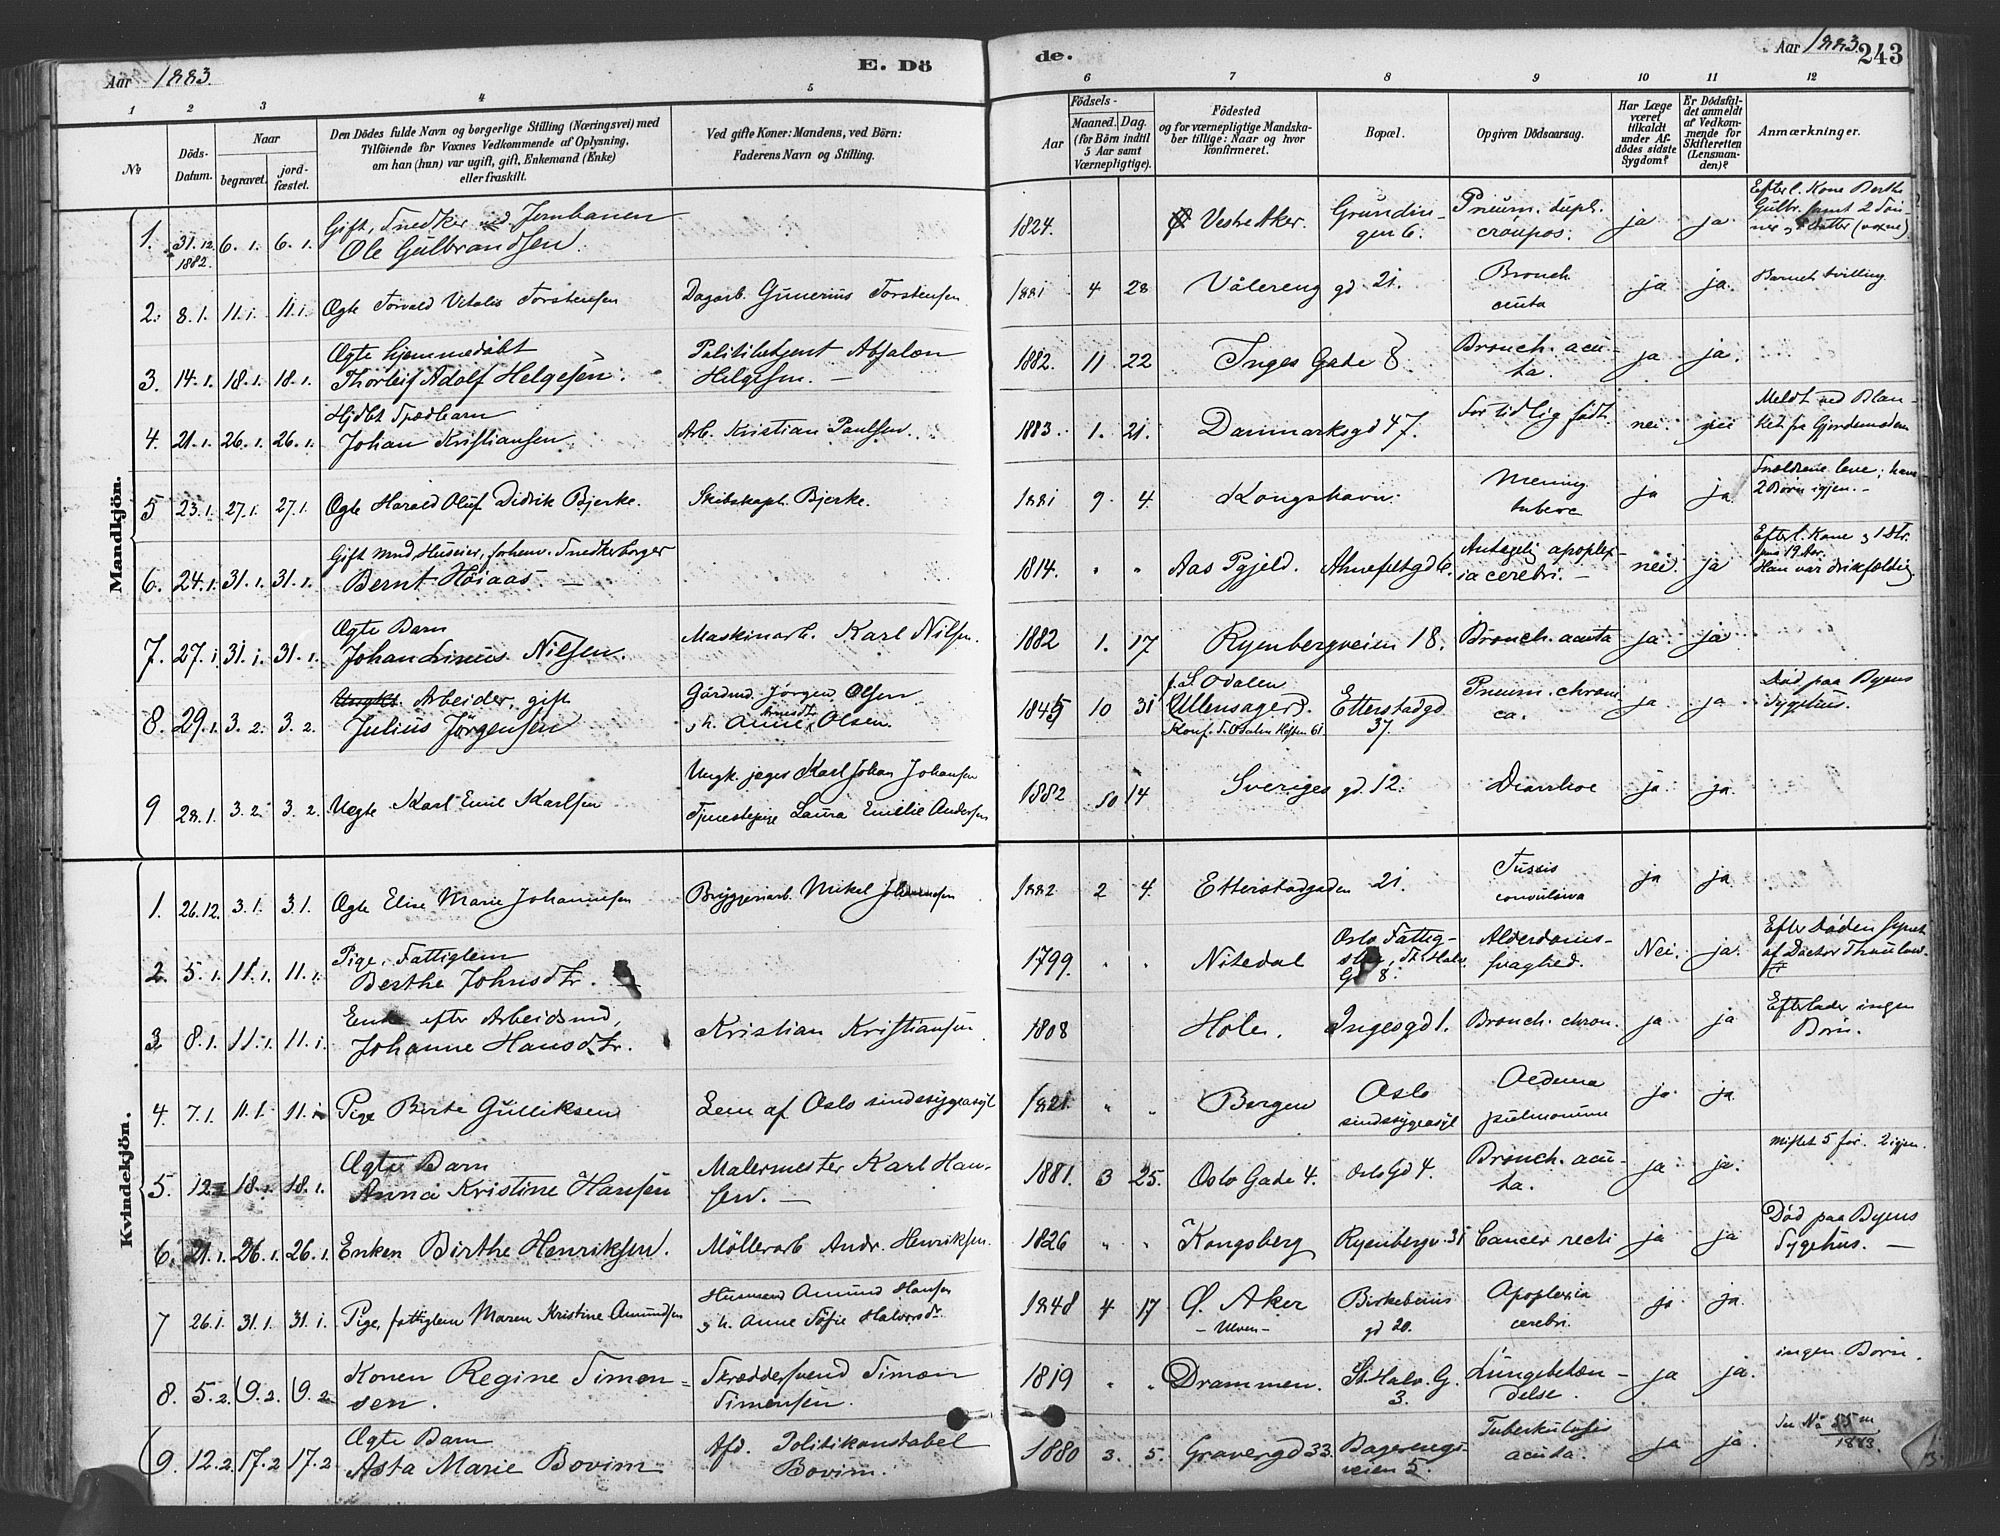 Aar 1883.
E. Dö
de.
Aar 1883.
243
1 2 3 4 5 6 7 8 9 10 11 12
No
Döds-Datum.
Naar
begravet.
jord-fæstet.
Den Dödes fulde Navn og borgerlige Stilling (Næringsvei) med
Tilföiende for Voxnes Vedkommende af Oplysning,
om han (hun) var ugift, gift, Enkemand (Enke)
eller fraskilt.
Ved gifte Koner: Mandens, ved Börn:
Faderens Navn og Stilling.
Födsels-
Aar
Maaned.
Dag.
(for Börn indtil
5 Aar samt
Værnepligtige).
Födested
og for værnepligtige Mandska-
ber tillige: Naar og hvor
konfirmeret.
Bopæl.
Opgiven Dödsaarsag.
Har Læge
været
tilkaldt
under Af-
dödes sidste
Sygdom?
Er Dödsfal-
det anmeldt
af Vedkom-
mende for
Skifteretten
(Lensman-
den)?
Anmærkninger.
Mandkjön.
1. 31.12. 1882. 6.1. 6.1. Gift, Snedker ved Jernbanen
Ole Gulbrandsen. 1824. Vestre Aker. Grundin-
gen 6. Pneum. dupl.
croupos. ja ja Efterl. Kone Berthe
Gulbr. samt 2 Søn-
ner, Datter (voxne)
2. 8.1. 11.1. 11.1. Ægte Torvald Vitalis Torstensen Dagarb. Gunerius Torstensen 1881 4 28 Vålereng gd. 21. Bronch
acuta ja ja. Barnet tvilling
3. 14.1. 18.1. 18.1. Ægte hjemmedøbt
Thorleif Adolf Helgesen. Politibetjent Absalon
Helgesen. — 1882. 11 22 Inges Gade 8. Bronch. acu-
ta. ja ja.
4. 21.1. 26.1. 26.1. Hjdbt Spædbarn
Johan Kristiansen Arb. Kristian Paulsen. 1883. 1. 21. Danmarksgd 47. For tidlig født. nei. nei Meldt ved Blan-
ket fra Gjordemoderen
5 23.1. 27.1. 27.1. Ægte Harald Oluf Didrik Bjerke. Skibskapt. Bjerke. 1881 9. 4. Kongshavn. Mening
tuberc ja ja Forældrene leve; have
2 Børn igjen. —
6. 24.1. 31.1. 31.1. Gift Mand Huseier, forhenv. Snedkerborger
Bernt Høiaas. — 1814. " " Aas Pgjeld. Ahnefeltgd 6. Antagelig apoplex-
ia cerebri. — nei. ja Efterl. Kone, 1 Dtr.
paa 19 Aar.
Han var drikfældig
7. 27.1 31.1. 31.1. Ægte Barn
Johan Linus Nilsen. Maskinarb. Karl Nilsen. 1882 1. 17 Ryenbergveien 18. Bronch. acuta ja. ja.
8. 29.1. 3.2. 3.2. Ungkl. Arbeider, gift
Julius Jørgensen Gårdmd. Jørgen Olsen
, h. Anne Olsen. 1845 10 31 f. S. Odalen
Ullensager d.
Konf. S. Odalen Høsten 61. Etterstadgd
37. Pneum. chroni
ca. ja ja Død paa Byens
Sygehus.
9 28.1. 3.2. 3.2. Uegte Karl Emil Karlsen Ungk. jeger Karl Johan Johansen
Tjenestepige Laura Emelie Andersen 1882 10 14 Sveriges gd. 12. Diarrhoe ja ja.
Kvindekjön.
1. 26.12. 3.1. 3.1. Ægte Elise Marie Johannesen Bryggeriarb. Mikel Johannesen 1882 2 4. Etterstadgaden 21. Tussis
convulsiva ja ja.
2. 5.1. 11.1. 11.1. Pige, Fattiglem
Berthe Johnsdtr. 1799. " " Nitedal Oslo Fattig-
St. Halv.
Gd 8. Alderdoms-
svaghed. Nei. ja. Efter Døden synet
af Doctor Thaulow.
3. 8.1. 11.1. 11.1. Enke efter Arbeidsmd,
Johanne Hansdtr. Kristian Kristiansen 1808 Hole. Ingesgd 1. Bronch. chron. ja ja Efterlader ingen
Børn.
4. 7.1. 11.1. 11.1 Pige Berte Gulliksen Lem af Oslo sindssygeasyl 1821. " " Bergen Oslo
sindssygeasyl Oedema
pulmonum ja ja.
5. 12.1 18.1. 18.1. Ægte Barn
Anna Kristine Hansen Malermester Karl Han-
sen. — 1881. 3 25. Oslo Gade 4. Oslo Gd 4. Bronch. acu-
ta. ja ja. mistet 5 før. 2 igjen.
6. 21.1. 26.1. 26.1. Enken Birthe Henriksen. Möllerarb Andr. Henriksen. 1826 " " Kongsberg Ryenbergv. 31 Cancer recti ja ja Død paa Byens
Sygehus. —
7 26.1. 31.1. 31.1. Pige, fattiglem Maren Kristine Amundsen Husmand Amund Hansen
, h. Anne Sofie Halvorsdr. 1848 4 17 Ø. Aker
— Ulven — Birkebeins
gd 20. Apoplexia
cerebri. ja ja.
8. 5.2. 9.2. 9.2 Konen Regine Simon-
sen. Skræddersvend Simon
Simonsen. 1819 " " Drammen. St. Halv. G.
3. Lungebetæn-
delse. ja ja. ingen Børn.
9. 12.2. 17.2 17.2. Ægte Barn
Asta Marie Bovim Afd. Politikonstabel
Bovim. 1880 3. 5. Gravergd 33. Bagerengs-
veien 5. Tuberkulosis
acuta. ja ja Se No 55 m
1883.